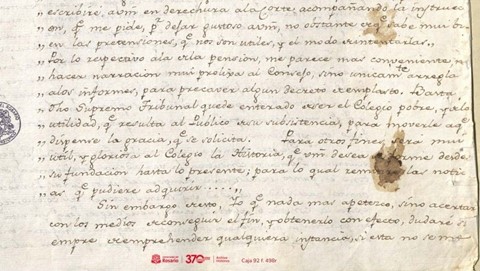 „ escribiré; a vm̃ en derechura a la Corte, acompañando la instrucci
„ on, q.e me pide, p.r dejar gustoso a vm̃, no obstante q.e sabe mui b.n
„ en las pretensiones, q.e nos son utiles, y el modo
„ Por lo respectivo a la pension, me parece mas conveniente, no
„ hacer narracion mui prolixa al Consejo, sino unicam.te arregla
„ a los informes, para precaver algun decreto Basta
„ Supremo Tribunal quede enterado ser el Colegio pobre, y de la
„ utilidad, q.e resulta al Publico su subsistencia, para moverle a q.e
„ dispense la gracia, q.e se solicita. Para otros fines, sera mui
„ util, y gloriosa al Colegio la Historia, q.e vm̃ desea desde
„ su fundacion hasta lo presente; para lo qual las noti
„ as q.e pudiere adquirir . . . . „
Sin embargo Lo q.e nada mas apetezco, sino acertar
con los medios conseguir el fin, y obtenerlo con efecto, dudaré si
empre, emprender qualquiera instancia, si esta no se
Universidad del Rosario
370 años
Archivo Histórico
Caja 92 f. 498r